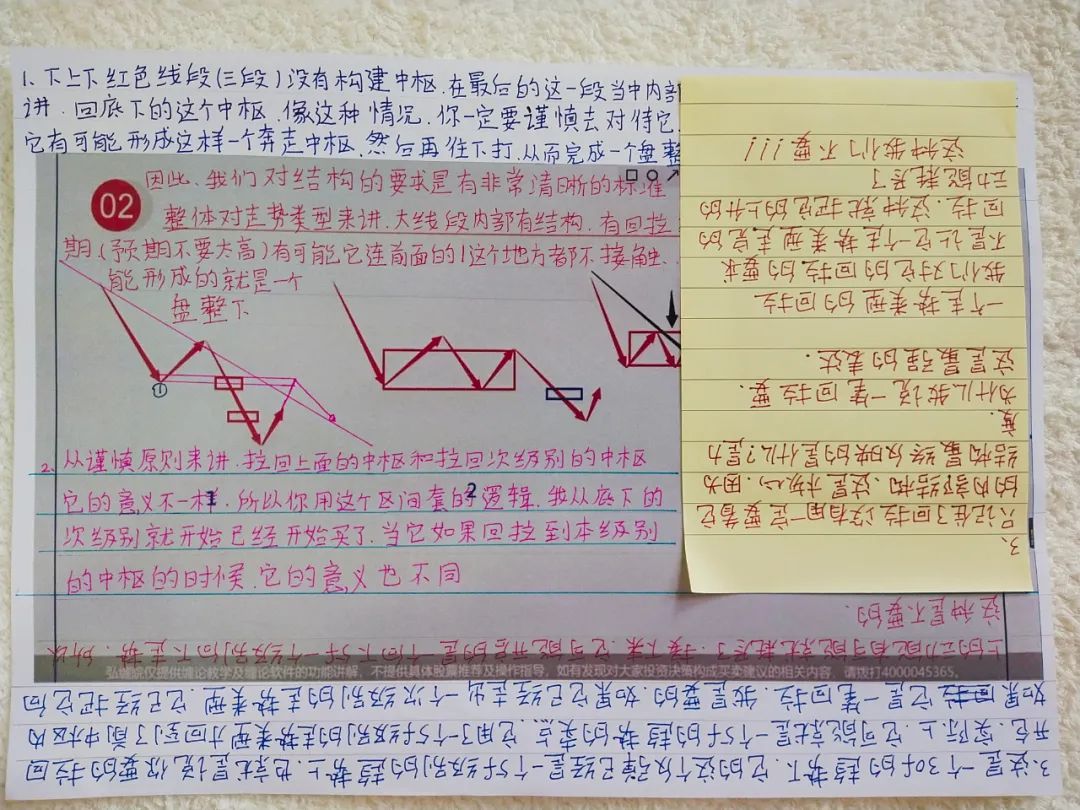 1、下上下红色线段(三段)没有构建中枢.在最后的这一段当中内部
讲.回底下的这个中枢.像这种情况.你一定要谨慎去对待它.
它有可能形成这样一个奔走中枢.然后再往下打.从而完成一个盘整
02
因此、我们对结构的要求是有非常清晰的标准
整体对走势类型来讲.大线段内部有结构.有回拉
期.(预期不要太高)有可能它连前面的1这个地方都不接触.
能形成的就是一个
盘整下
①
2、从谨慎原则来讲.拉回上面的中枢和拉回次级别的中枢
它的意义不一样.所以你用这个区间套的逻辑.我从底下的
次级别就开始已经开始买了.当它如果回拉到本级别
的中枢的时候.它的意义也不同
3、
只记住了回拉没有用一定要看它
的内部结构、这是核心、因为
结构最终反映的是什么?是力
度.
为什么我说一笔回拉要.
这是最强的表达.
一个走势类型的回拉
我们对它的回拉的要求
不是让它一个走势类型走完的
回拉.这种就把它的上升的
动能耗尽了
这种我们不要!!!
弘缠院仅提供缠论教学及缠论软件的功能讲解、不提供具体股票推荐及操作指导、如有发现对大家投资决策构成买卖建议的相关内容、请拨打4000045365。
3.这是一个30f的趋势下.它的这个反弹已经是一个5f级别的趋势上.也就是说你要的回拉
开仓.实际上.它可能就是一个5f的趋势的卖点.它用了一个5f级别的走势类型才回到了前中枢内
如果回拉它是一笔回拉.我是要的.如果它已经走出一个次级别的走势类型.它已经把它向
上的动能有可能就是耗尽了.接下来.它可能开启的是一个向下5f一个级别向下走势.所以
这种是不要的.